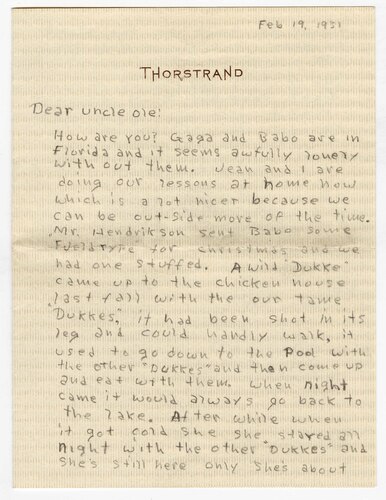 Feb 19, 1931
THORSTRAND
Dear uncle ole!
How are you? Gaga and Babo are in
Florida and it seems awfully lonery
with out them. Jean and I are
doing our lessons at home now
which is a lot nicer because we
can be out-side more of the time.
"Mr. Hendrikson sent Babo some
for christmas and we
had one stuffed. A wild "Dukke"
came up to the chicken house
last fall with the our tame
"Dukkes", it had been shot in its
leg and could hardly walk, it
used to go down to the Pool with
the other "Dukkes" and then come up
and eat with them. when night
came it would always go back to
the lake. After while when
it got cold she she stayed all
night with the other "Dukkes" and
she's still here only she's about